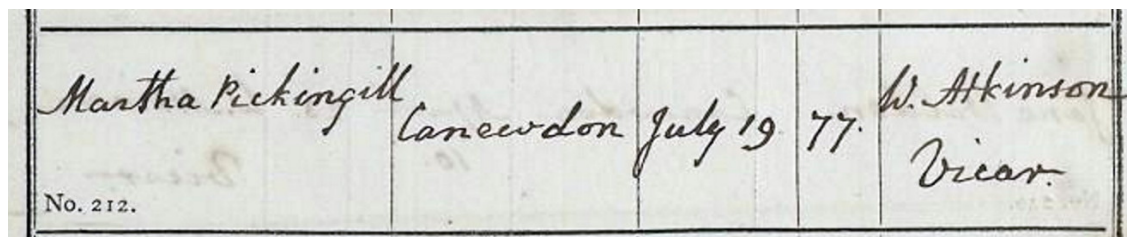 Martha Pickingill
Canewdon
July 19
77.
W. Atkinson
Vicar.
No. 212.